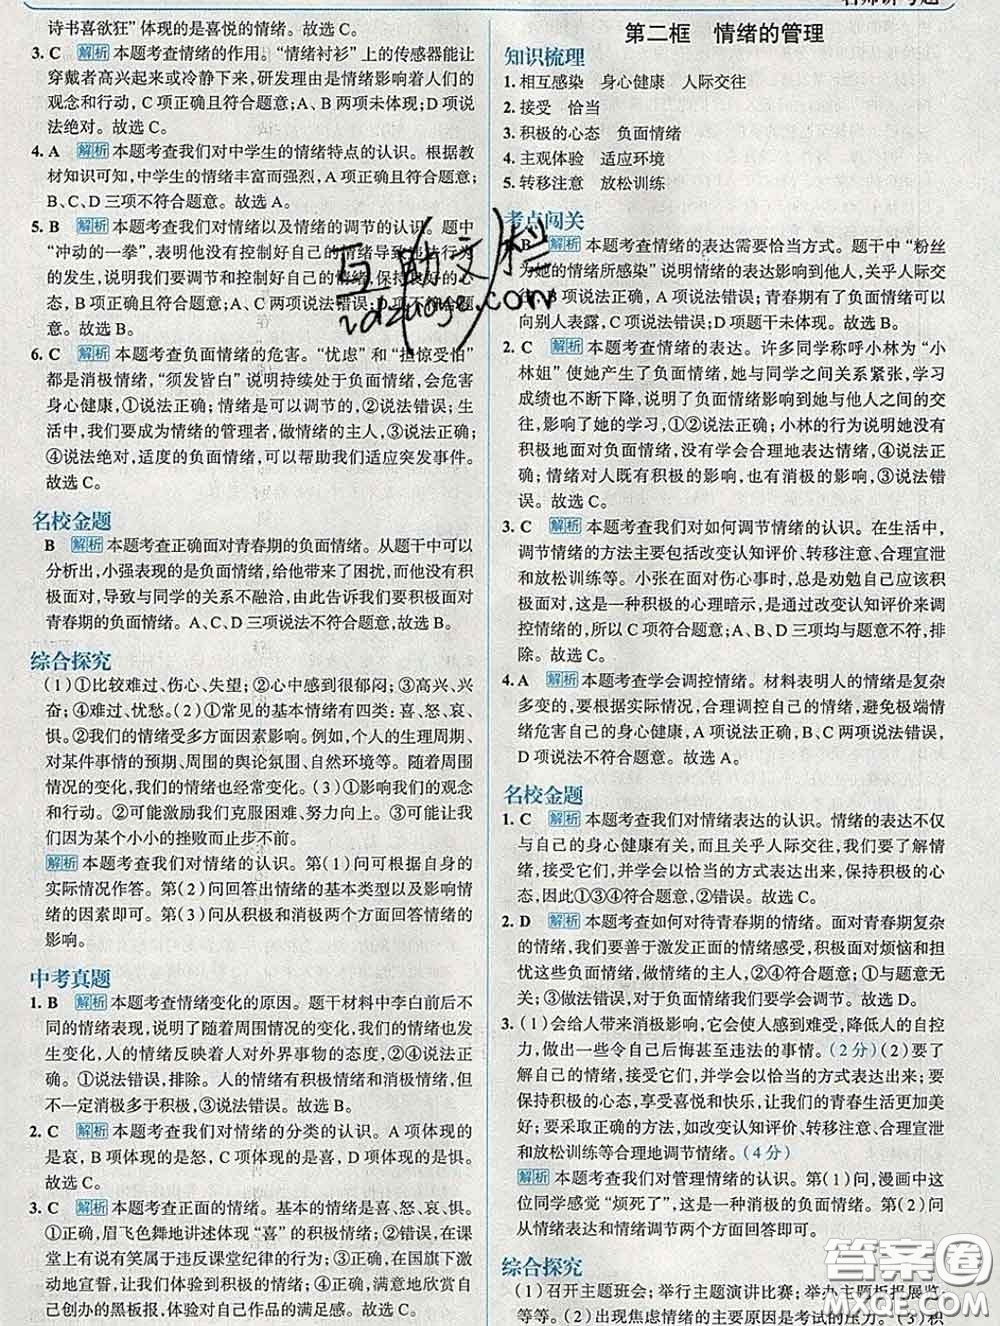 诗书喜欲狂”体现的是喜悦的情绪。故选C。
3. C 解析 本题考查情绪的作用。“情绪衬衫”上的传感器能让
穿戴者高兴起来或冷静下来，研发理由是情绪影响着人们的
观念和行动，C项正确且符合题意；A、B两项未体现；D项说
法绝对。故选C。
4. A 解析 本题考查我们对中学生的情绪特点的认识。根据教
材知识可知，中学生的情绪丰富而强烈，A项正确且符合题意；
B、C、D三项不符合题意。故选A。
5. B 解析 本题考查我们对情绪以及情绪的调节的认识。题中
“冲动的一拳”，表明他没有控制好自己的情绪导致他过行为
的发生，说明我们要调节和控制好自己的情绪，保持良好的心
态，B项正确且符合题意；A、C两项说法错误；D项不符合题
意。故选B。
6. C 解析 本题考查负面情绪的危害。“忧虑”和“担惊受怕”
都是消极情绪，“须发皆白”说明持续处于负面情绪，会危害
身心健康，①说法正确；情绪是可以调节的，②说法错误；生
活中，我们要成为情绪的管理者，做情绪的主人，③说法正确；
④说法绝对，适度的负面情绪，可以帮助我们适应突发事件。
故选C。
名校金题
B 解析 本题考查正确面对青春期的负面情绪。从题干中可以
分析出，小强表现的是负面情绪，给他带来了困扰，而他没有积
极面对，导致与同学的关系不融洽，由此告诉我们要积极面对
青春期的负面情绪。A、C、D三项说法不符合题意，故选B。
综合探究
（1）①比较难过、伤心、失望；②心中感到很郁闷；③高兴、兴
奋；④难过、忧愁。（2）①常见的基本情绪有四类：喜、怒、哀、
惧。②我们的情绪受多方面因素影响。例如，个人的生理周期、
对某件事情的预期、周围的舆论氛围、自然环境等。随着周围
情况的变化，我们的情绪也经常变化。（3）①影响我们的观念
和行动。②可能激励我们克服困难、努力向上。③可能让我
们因为某个小小的挫败而止步不前。
解析 本题考查我们对情绪的认识。第（1）问可根据自身的
实际情况作答。第（2）问回答出情绪的基本类型以及影响情
绪的因素即可。第（3）问从积极和消极两个方面回答情绪的
影响。
中考真题
1. B 解析 本题考查情绪变化的原因。题干材料中李白前后不
同的情绪表现，说明了随着周围情况的变化，我们的情绪也发
生变化，人的情绪反映着人对外界事物的态度，②④说法正
确。①说法错误，排除。人的情绪有积极情绪和消极情绪，但
不一定消极多于积极，③说法错误。故选B。
2. C 解析 本题考查我们对情绪的分类的认识。A项体现的
是哀，B项体现的是怒，C项体现的是喜，D项体现的是惧。
故选C。
3. C 解析 本题考查正面的情绪。基本的情绪是喜、怒、哀、惧。
①正确，眉飞色舞地讲述体现“喜”的积极情绪；②错误，在课
堂上有说有笑属于违反课堂纪律的行为；③正确，在国旗下激
动地宣誓，让我们体验到积极情绪；④正确，满意地欣赏自己
自己创办的黑板报，体验对自己作品的满足感。故选C。
第二框 情绪的管理
知识梳理
1. 相互感染 身心健康 人际交往
2. 接受 恰当
3. 积极的心态 负面情绪
4. 主观体验 适应环境
5. 转移注意 放松训练
考点闯关
B 解析 本题考查情绪的表达需要恰当方式。题干中“粉丝
为她的情绪所感染”说明情绪的表达影响到他人，关乎人际交
往，B项说法正确，A项说法错误；青春期有了负面情绪可以
向别人表露，C项说法错误；D项题干未体现。故选B。
2. C 解析 本题考查情绪的表达。许多同学称呼小林为“小
林姐”使她产生了负面情绪，她与同学之间关系紧张，学习
成绩也不断下降，说明了负面情绪影响到她与他人之间的交
往，影响了她的学习，①②说法正确；小林的行为说明她没有
积极地面对负面情绪，没有学会合理地表达情绪，④说法正
确；情绪对人既有积极的影响，也有消极的影响，③说法错
误。故选C。
3. C 解析 本题考查我们对如何调节情绪的认识。在生活中，
调节情绪的方法主要包括改变认知评价、转移注意、合理宣泄
和放松训练等。小张在面对伤心事时，总是劝勉自己应该积
极面对，这是一种积极的心理暗示，是通过改变认知评价来调
控情绪的，所以C项符合题意；A、B、D三项均与题意不符，排
除。故选C。
4. A 解析 本题考查学会调控情绪。材料表明人的情绪是复杂
多变的，要根据实际情况，合理调控自己的情绪，避免极端情
绪危害自己的身心健康，A项符合题意；B、C项说法错误，
D项说法不符合题意。故选A。
名校金题
1. C 解析 本题考查我们对情绪表达的认识。情绪的表达不仅
与自己的身心健康有关，而且关乎人际交往，我们要了解情
绪，接受它们，并学会以恰当的方式表达出来，保持积极的心
态，因此①③④符合题意，②错误。故选C。
2. D 解析 本题考查如何对待青春期的情绪。面对青春期复杂
的情绪，我们要善于激发正面的情绪感受，积极面对烦恼和担
忧这些负面情绪，做情绪的主人，②④说法正确；①与题意无
关；③做法错误，对于负面情绪我们要学会调节。故选D。
3.（1）会给人带来消极影响，它会使人感到难受，降低人的自控
力，做出一些令自己后悔甚至违法的事情。（2分）（2）要了
解自己的情绪，接受它们，并学会以恰当的方式表达出来；要
保持积极的心态，享受喜悦和快乐，让我们的青春生活更加美
好；要采取正确的方法，如改变认知评价、转移注意、合理宣
泄、放松训练等合理地调节情绪。（4分）
解析 本题考查我们对管理情绪的认识。第（1）问，漫画中这
位同学感觉“烦死了”，这是一种消极的负面情绪。第（2）问
从情绪表达和情绪调节两个方面回答即可。
综合探究
（1）召开主题班会；举行主题演讲比赛；举办主题板报展览，
等等。（2）出现焦虑情绪的主要原因是考试的压力。（3）积
答案圈
MXQE.COM